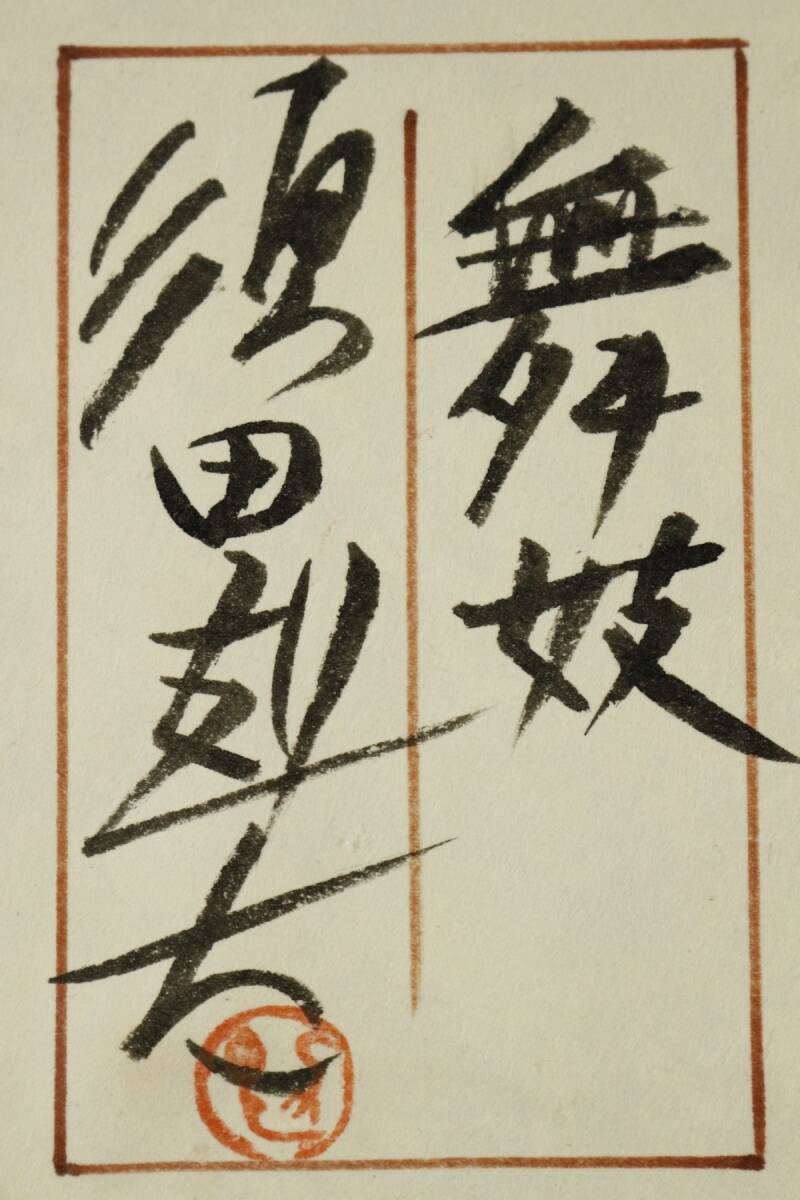 舞妓
須田剋太